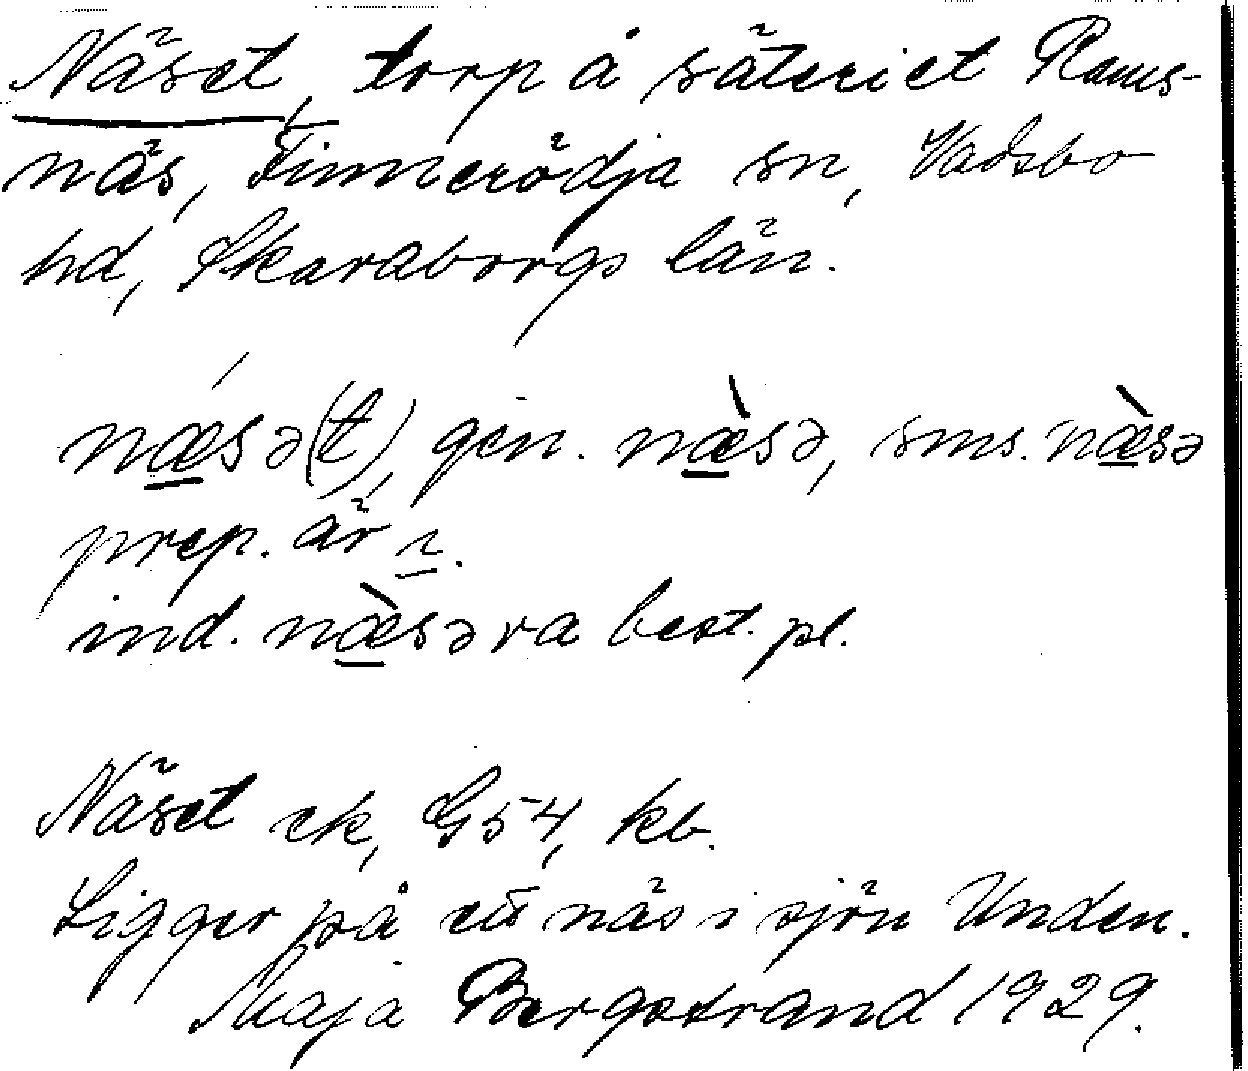 Näset, torp å säteriet Rams-
näs, Finnerödja sn, Vadsbo
hd, Skaraborgs län.
næ̲sə(t), gen. næ̲̀sə, sms. næ̲̀sə
prep. är ı̲.
ind. næ̲̀səra best. pl.
Näset ek, G54, kb.
Ligger på ett näs i sjön Unden.
Maja Bergstrand 1929.